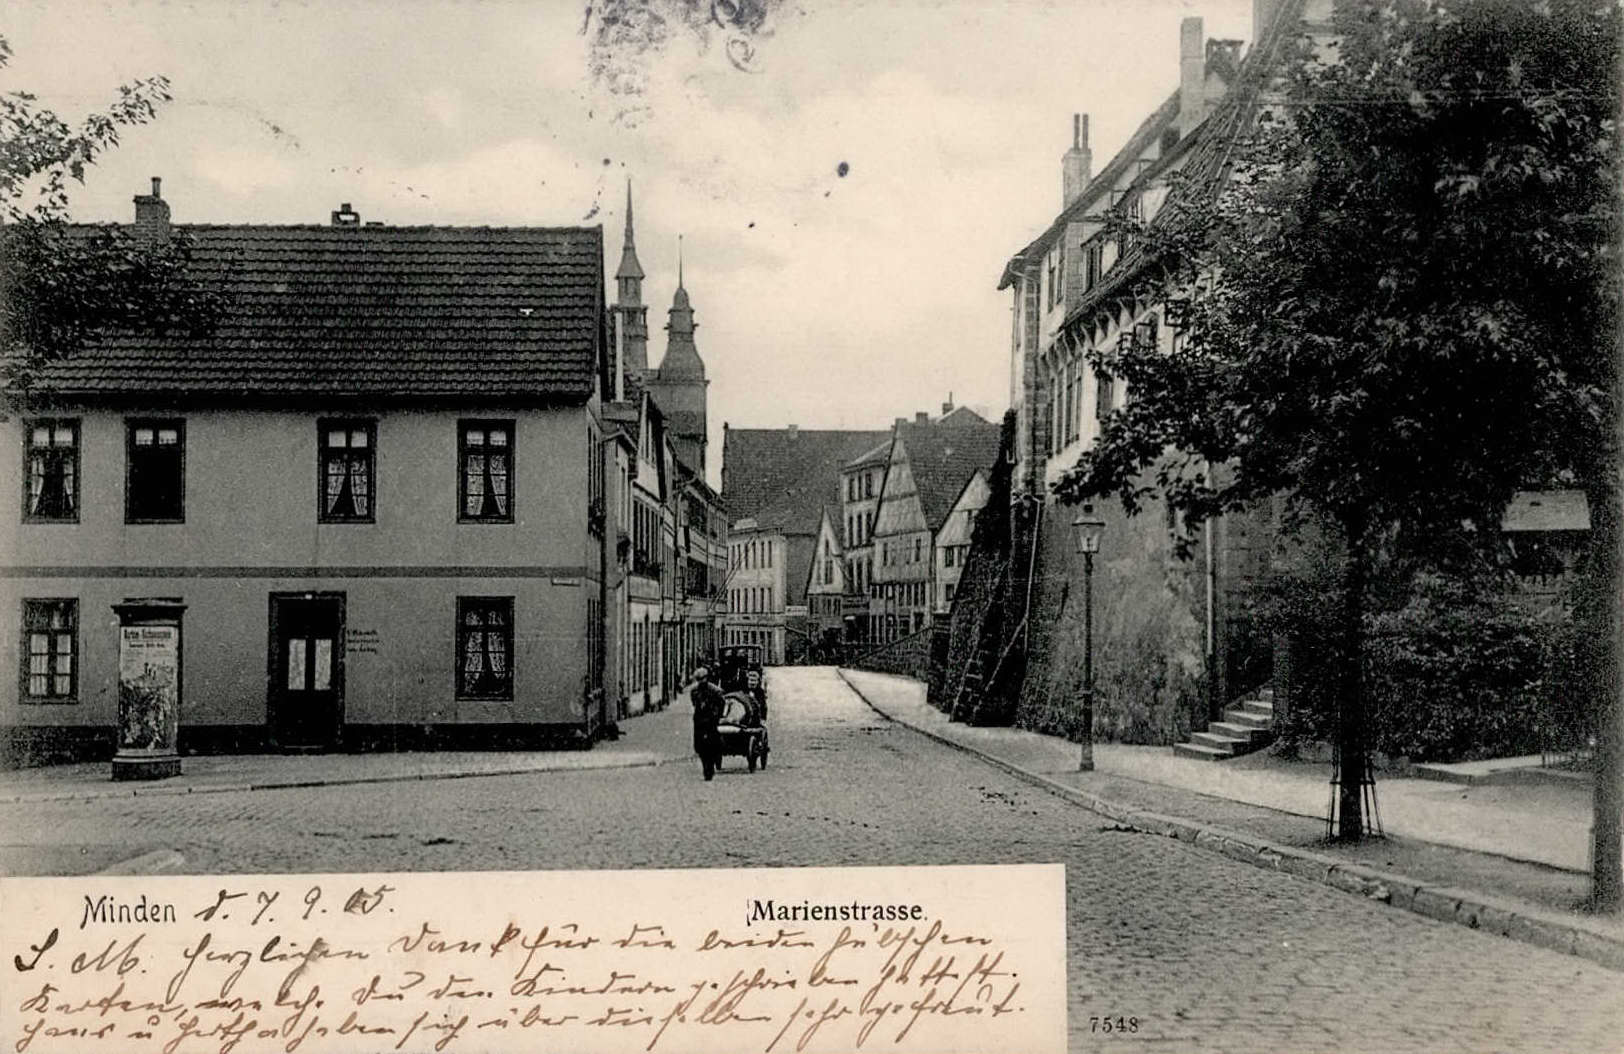 Minden d. 7. 9. 05.
Marienstrasse.
L. M. herzlichen Dank für die beiden hübschen
Karten, welche Du den Kindern geschrieben hattest.
Hans u Hertha haben sich über dieselben sehr gefreut.
7548